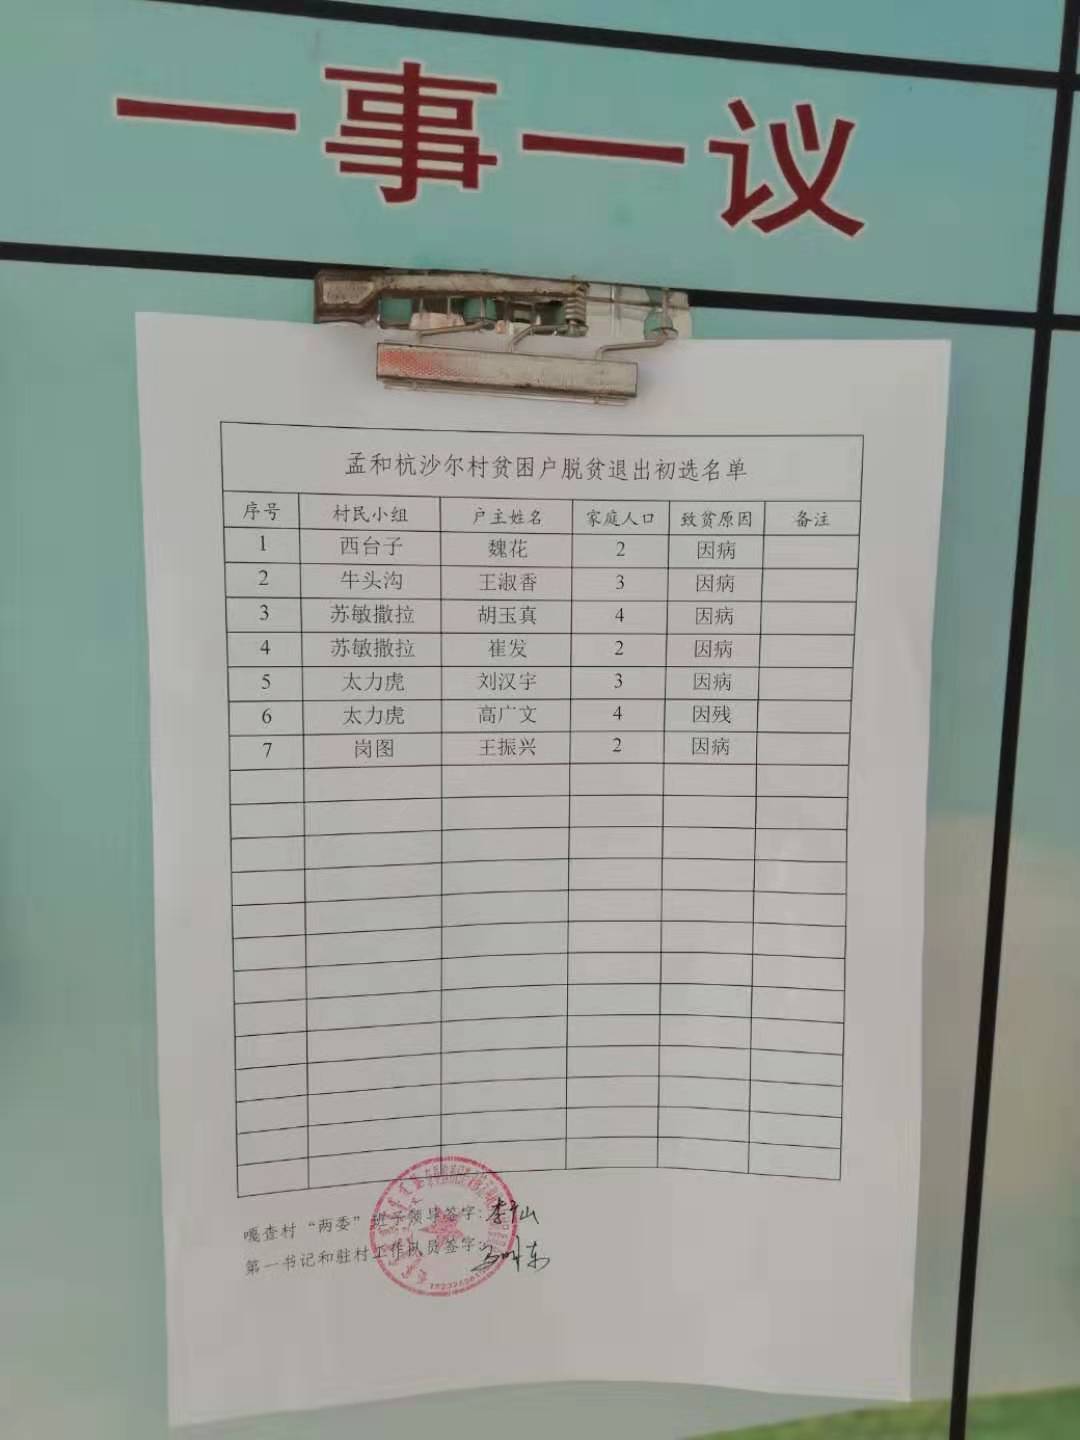 一事一议
孟和杭沙尔村贫困户脱贫退出初选名单
序号 村民小组 户主姓名 家庭人口 致贫原因 备注
1 西台子 魏花 2 因病
2 牛头沟 王淑香 3 因病
3 苏敏撒拉 胡玉真 4 因病
4 苏敏撒拉 崔发 2 因病
5 太力虎 刘汉宇 3 因病
6 太力虎 高广文 4 因残
7 岗图 王振兴 2 因病
嘎查村“两委”班子领导签字：李山
第一书记和驻村工作队员签字：